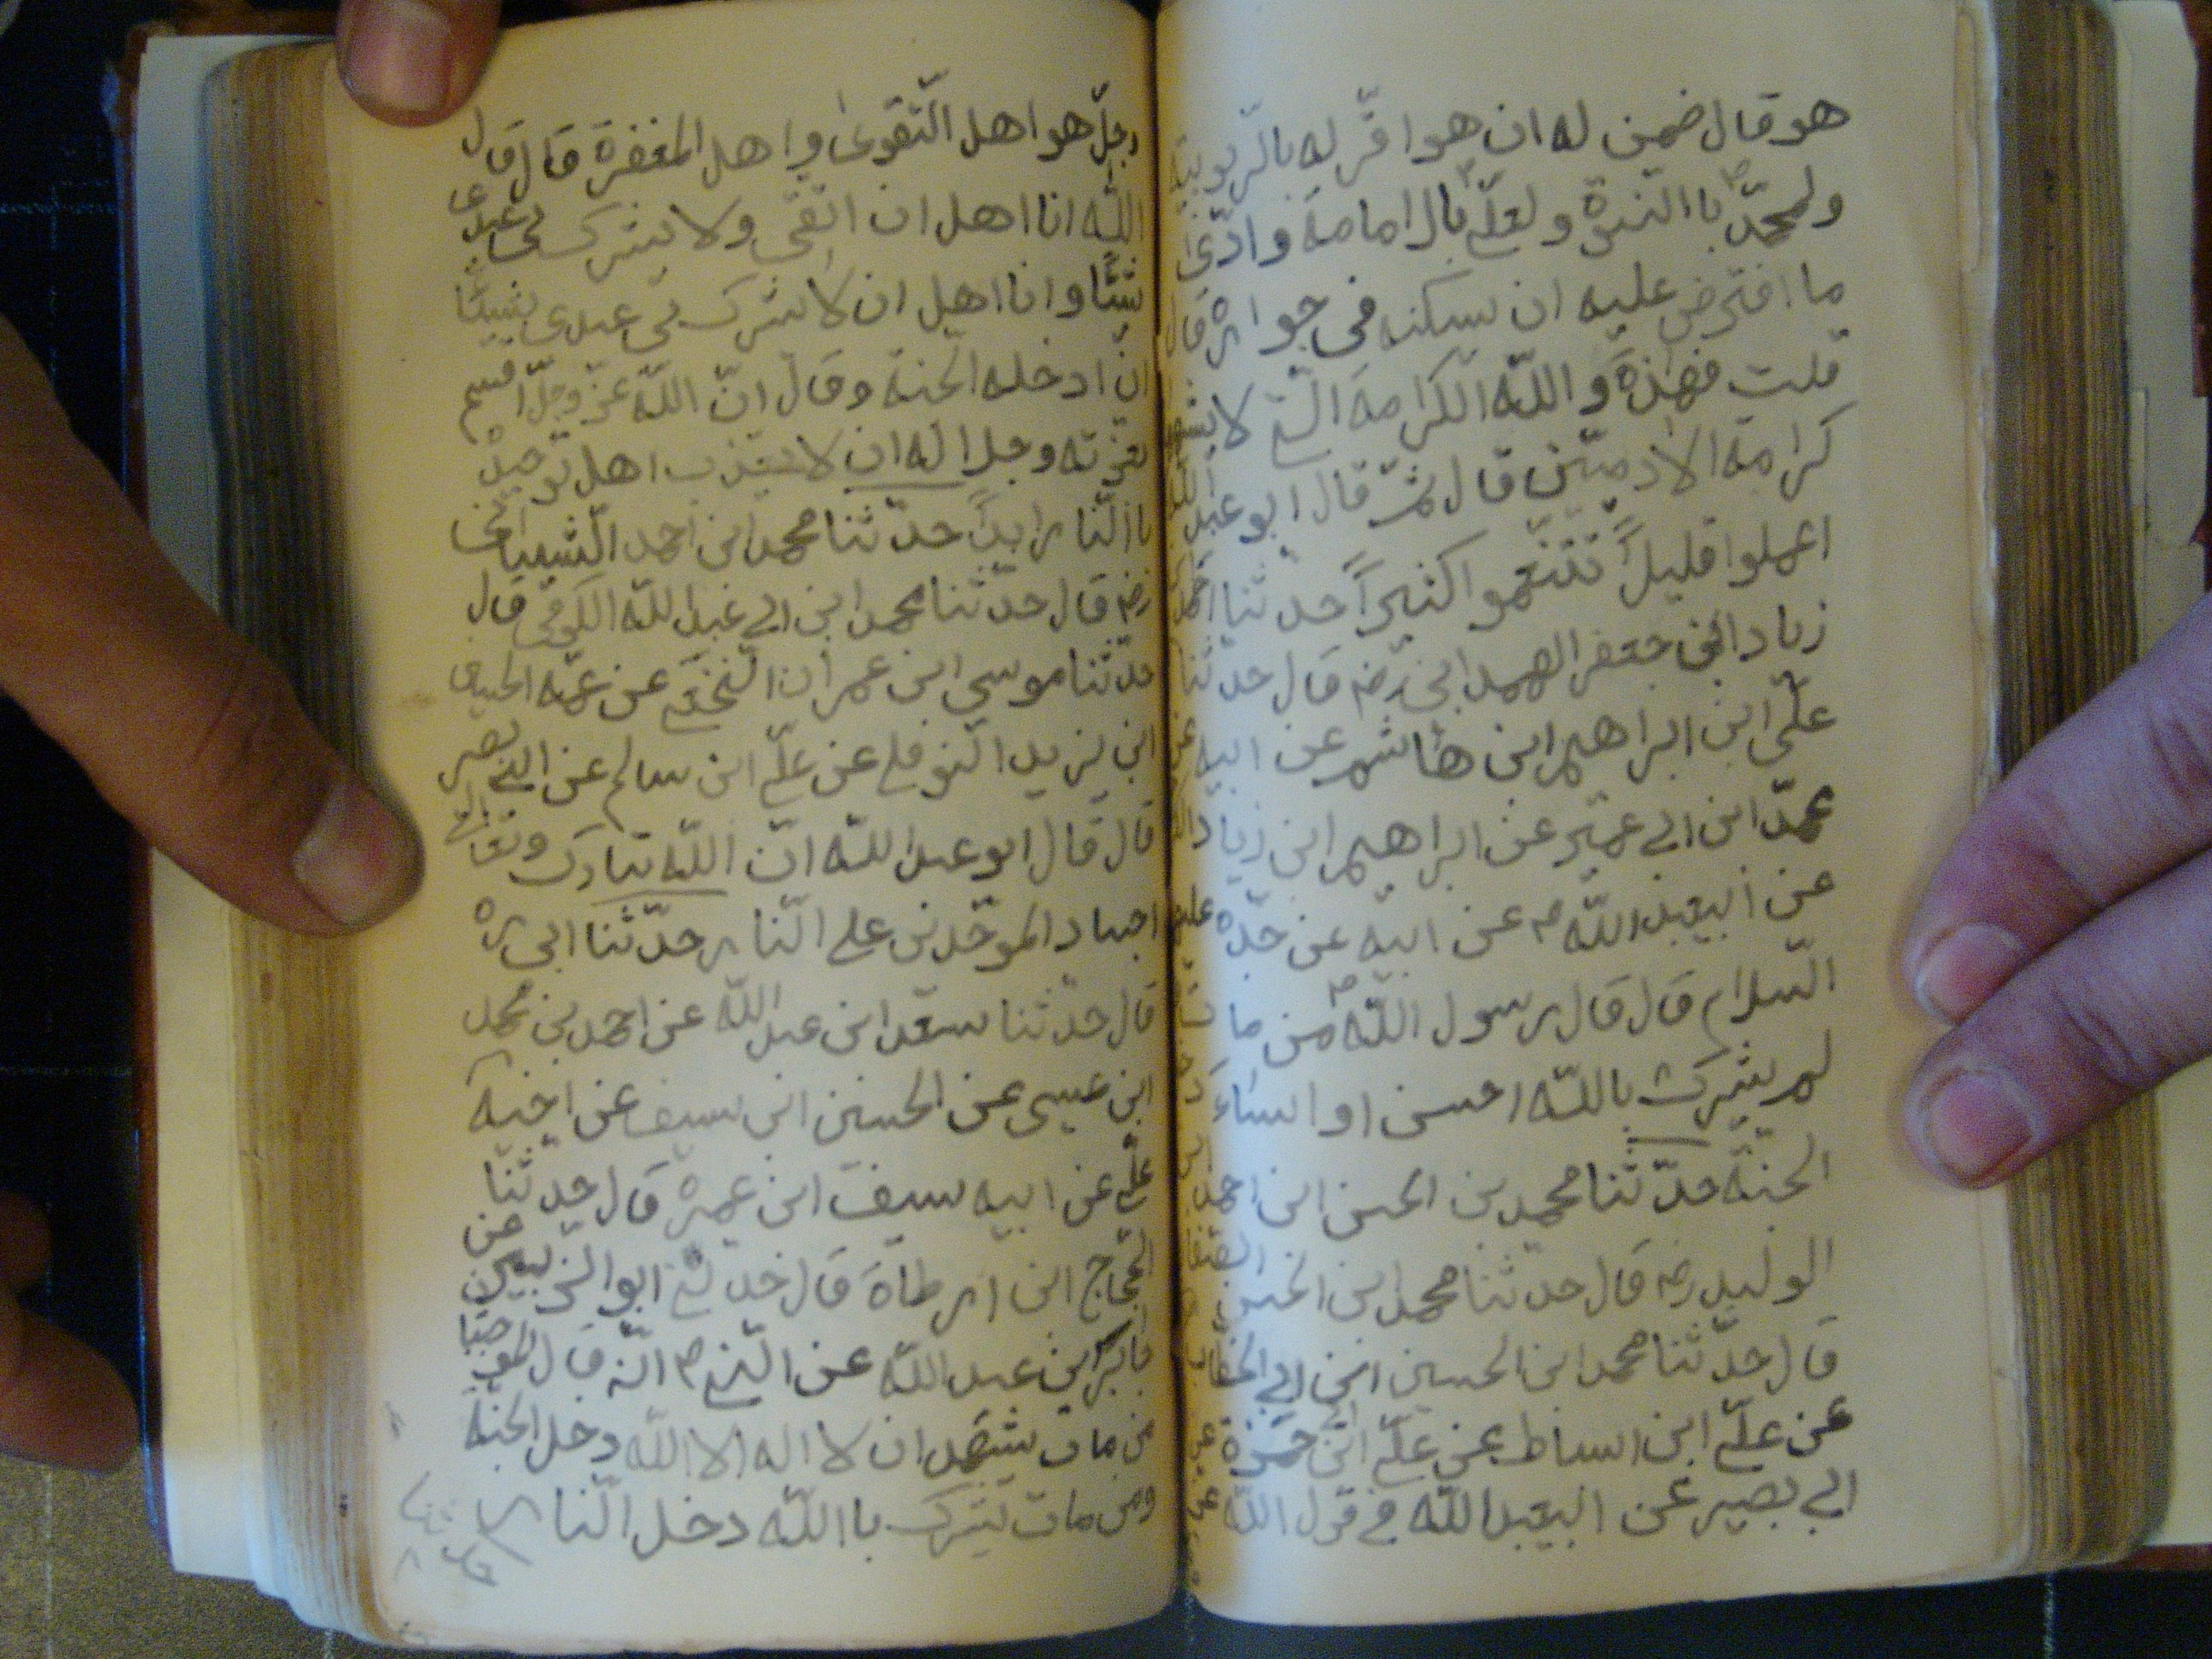 هو قال ضمن له ان هو اقرّ له بالرّبوبية
ولمحمّد ص باالنبوّة ولعلّي بالامامة وادّى
ما افترض عليه ان يسكنه فى جواره قال
قلت فهذه واللّه الكرامة الّتي لا يشبهها
كرامة الادميّين قال ثمّ قال ابو عبد اللّه
اعملوا قليلاً تتنعّموا كثيراً حدثنا احمد
زياد ابن جعفر الهمدانى رضه قال حدثنا
علّى ابن ابراهيم ابن هاشم عن ابيه عن
محمّد ابن ابي عمير عن ابراهيم ابن زياد
عن ابيعبد اللّه ص عن ابيه عن جدّه عليه
السّلام قال قال رسول اللّه ص من مات
لم يشرك باللّه احسن او اساء دخل
الجنّة حدّثنا محمد بن الحسن ابن احمد بن
الوليد رضه قال حدثنا محمد ابن الحسن الصفار
قال حدّثنا محمد ابن الحسين ابن ابي الخطاب
عن علّي ابن اسباط عن علّي ابن ابي حمزة عن
ابي بصير عن ابيعبد اللّه في قول اللّه عز
وجلّ هو اهل التّقوى واهل المغفرة قال قال
اللّه انا اهل ان اتّقى ولا يشرك بى عبدى
شيئًا وانا اهل ان لا يشرك بى عبدى شيئًا
ان ادخله الجنة وقال انّ اللّه عزّ وجلّ اقسم
بعزته وجلاله ان لا يعذب اهل توحيده
باالنّار ابداً حدّثنا محمد ابن احمد الشيبانى
رضه قال حدّثنا محمد ابن ابي عبد اللّه الكوفى قال
حدّثنا موسى ابن عمران النّخعّي عن عمّه الحسين
ابن يزيد النّوفلي عن علّي ابن سالم عن ابي بصير
قال قال ابو عبد اللّه انّ اللّه تبارك وتعالى
اجساد الموحّدين على النّار حدّثنا ابى ره
قال حدّثنا سعد ابن عبد اللّه عن احمد بن محمد
ابن عيسى عن الحسين ابن سيف عن اخيه
علّي عن ابيه سيف ابن عميره قال حدثنا
الحجّاج ابن ارطاة قال حدثني ابو الزبير عن
جابر ابن عبد اللّه عن النّبي ص انّه قال الموجبتان
من مات يشهد ان لا اله الا اللّه دخل الجنة
ومن مات يشرك باللّه دخل النّار